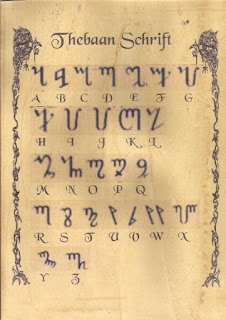 Thebaan Schrift
A B C D E F G
H I J K L
M N O P Q
R S T U V W X
Y Z